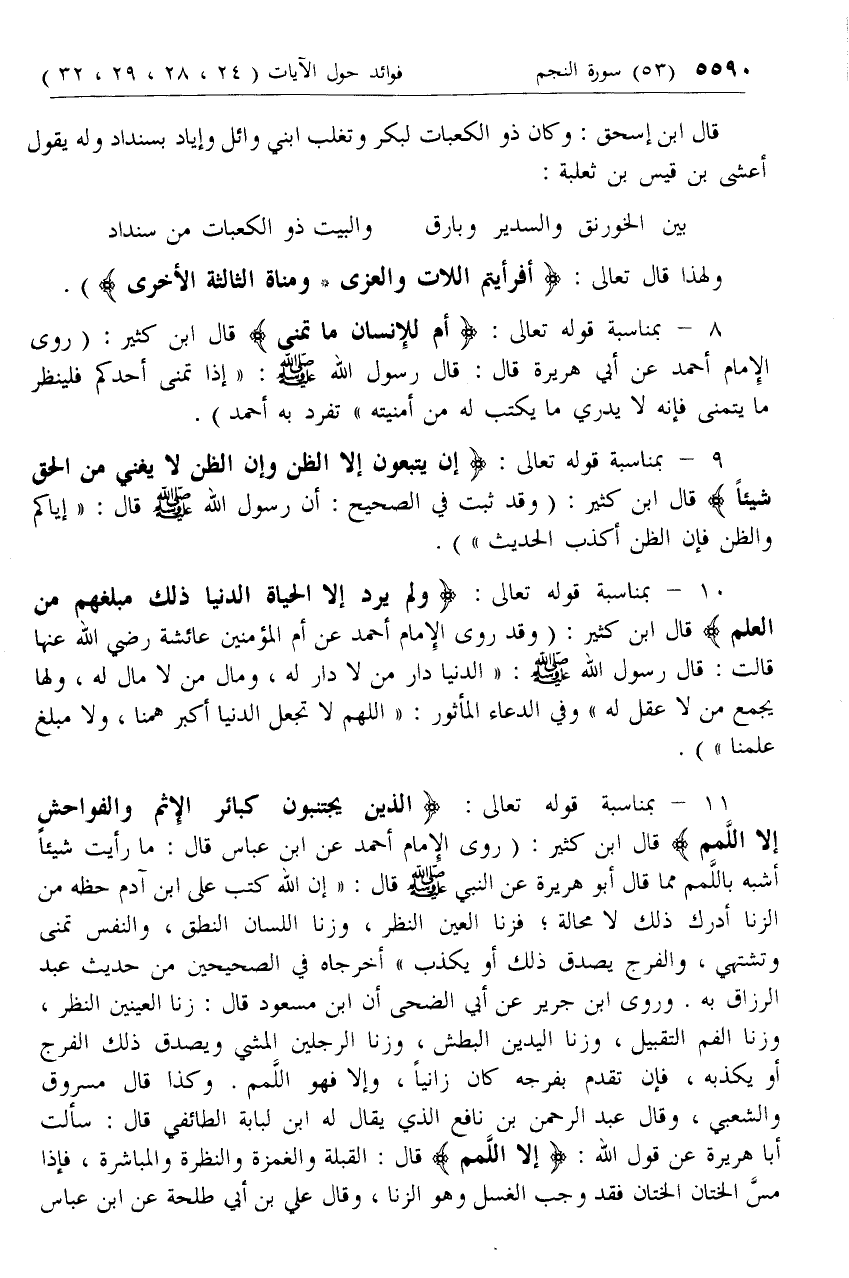 ٥٥٩٠ (٥٣) سورة النجم فوائد حول الآيات ( ٢٤ ، ٢٨ ، ٢٩ ، ٣٢ )
قال ابن إسحق : وكان ذو الكعبات لبكر وتغلب ابني وائل وإياد بسنداد وله يقول
أعشى بن قيس بن ثعلبة :
بين الخورنق والسدير وبارق والبيت ذو الكعبات من سنداد
ولهذا قال تعالى : ﴿ أفرأيتم اللات والعزى * ومناة الثالثة الأخرى ﴾ ) .
٨ – بمناسبة قوله تعالى : ﴿ أم للإنسان ما تمنى ﴾ قال ابن كثير : ( روى
الإمام أحمد عن أبي هريرة قال : قال رسول الله ﷺ : « إذا تمنى أحدكم فلينظر
ما يتمنى فإنه لا يدري ما يكتب له من أمنيته » تفرد به أحمد ) .
٩ – بمناسبة قوله تعالى : ﴿ إن يتبعون إلا الظن وإن الظن لا يغني من الحق
شيئاً ﴾ قال ابن كثير : ( وقد ثبت في الصحيح : أن رسول الله ﷺ قال : « إياكم
والظن فإن الظن أكذب الحديث » ) .
١٠ – بمناسبة قوله تعالى : ﴿ ولم يرد إلا الحياة الدنيا ذلك مبلغهم من
العلم ﴾ قال ابن كثير : ( وقد روى الإمام أحمد عن أم المؤمنين عائشة رضي الله عنها
قالت : قال رسول الله ﷺ : « الدنيا دار من لا دار له ، ومال من لا مال له ، ولها
يجمع من لا عقل له » وفي الدعاء المأثور : « اللهم لا تجعل الدنيا أكبر همنا ، ولا مبلغ
علمنا » ) .
١١ – بمناسبة قوله تعالى : ﴿ الذين يجتنبون كبائر الإثم والفواحش
إلا اللَّمم ﴾ قال ابن كثير : ( روى الإمام أحمد عن ابن عباس قال : ما رأيت شيئاً
أشبه باللَّمم مما قال أبو هريرة عن النبي ﷺ قال : « إن الله كتب على ابن آدم حظه من
الزنا أدرك ذلك لا محالة ؛ فزنا العين النظر ، وزنا اللسان النطق ، والنفس تمنى
وتشتهي ، والفرج يصدق ذلك أو يكذب » أخرجاه في الصحيحين من حديث عبد
الرزاق به . وروى ابن جرير عن أبي الضحى أن ابن مسعود قال : زنا العينين النظر ،
وزنا الفم التقبيل ، وزنا اليدين البطش ، وزنا الرجلين المشي ويصدق ذلك الفرج
أو يكذبه ، فإن تقدم بفرجه كان زانياً ، وإلا فهو اللَّمم . وكذا قال مسروق
والشعبي ، وقال عبد الرحمن بن نافع الذي يقال له ابن لبابة الطائفي قال : سألت
أبا هريرة عن قول الله : ﴿ إلا اللَّمم ﴾ قال : القبلة والغمزة والنظرة والمباشرة ، فإذا
مسَّ الختان الختان فقد وجب الغسل وهو الزنا ، وقال علي بن أبي طلحة عن ابن عباس